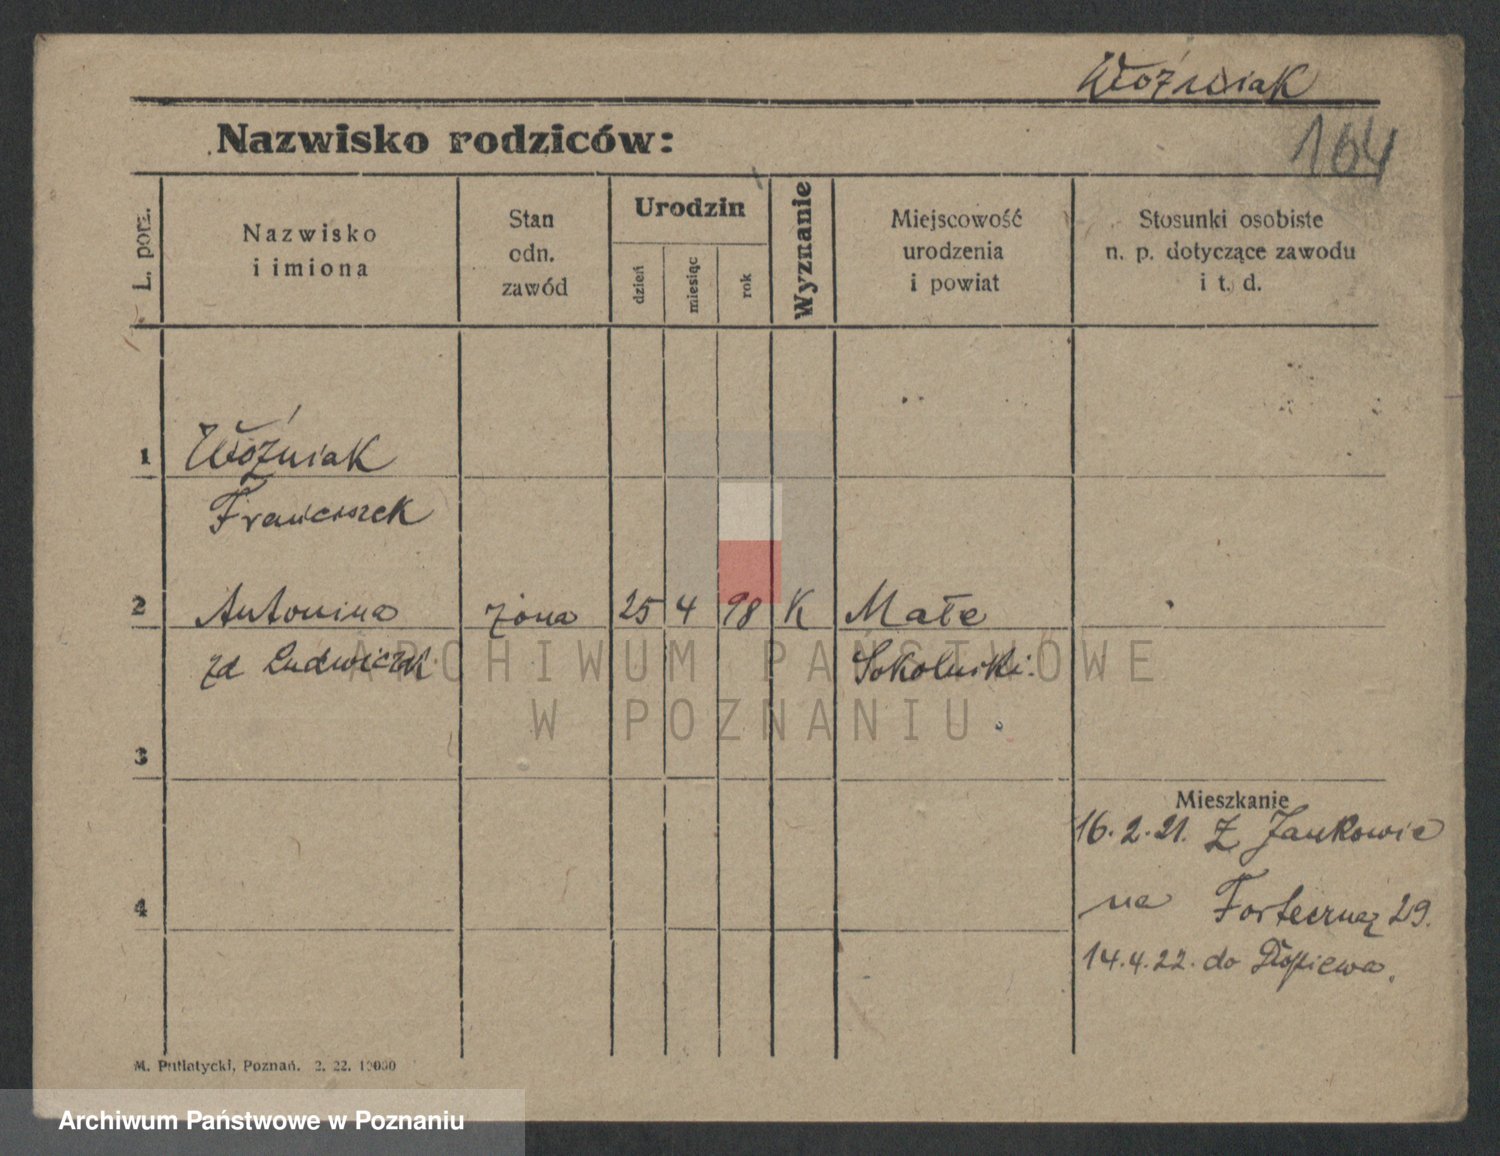 Woźniak
164
Nazwisko rodziców:
L. porz.
Nazwisko
i imiona
Stan
odn.
zawód
Urodzin
dzień
miesiąc
rok
Wyznanie
Miejscowość
urodzenia
i powiat
Stosunki osobiste
n. p. dotyczące zawodu
i t. d.
1 Woźniak
Franciszek
2 Antonina żona 25 4 98 K Małe
zd Ludwiczak Sokolniki.
3
Mieszkanie
16.2.21. Z Jankowic
na Forteczną 29.
4
14.4.22. do
M. Putiatycki, Poznań. 2. 22. 10000
ARCHIWUM PAŃSTWOWE
W POZNANIU
Archiwum Państwowe w Poznaniu